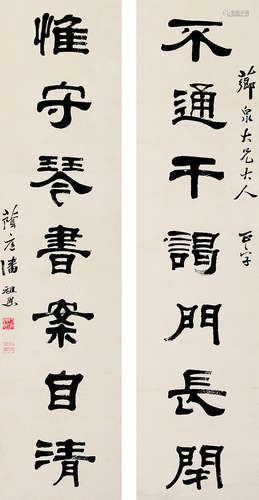 薌泉大兄大人 正字
不通干謁門長閉
惟守琴書案自清
潘祖